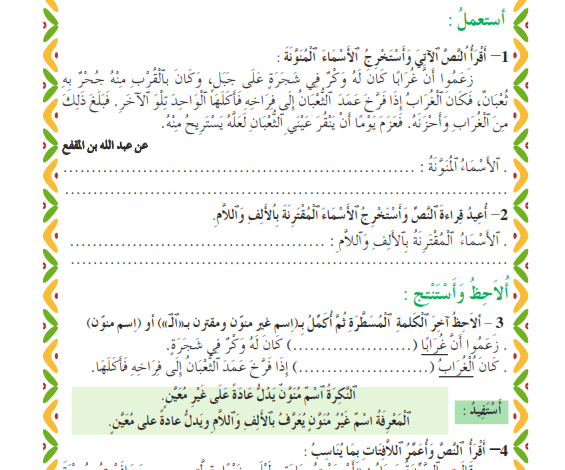 أستعملُ :
1– أَقْرَأُ النَّصَّ الآتِيَ وَأَسْتَخْرِجُ الأَسْمَاءَ الْمُنَوَّنَةَ :
زَعَمُوا أَنَّ غُرَابًا كَانَ لَهُ وَكْرٌ فِي شَجَرَةٍ عَلَى جَبَلٍ، وَكَانَ بِالْقُرْبِ مِنْهُ جُحْرٌ بِهِ
ثُعْبَانٌ، فَكَانَ الْغُرَابُ إِذَا فَرَّخَ عَمَدَ الثُّعْبَانُ إِلَى فِرَاخِهِ فَأَكَلَهَا الْوَاحِدَ تِلْوَ الآخَرِ. فَبَلَغَ ذَلِكَ
مِنَ الْغُرَابِ وَأَحْزَنَهُ. فَعَزَمَ يَوْمًا أَنْ يَنْقُرَ عَيْنَيِ الثُّعْبَانِ لَعَلَّهُ يَسْتَرِيحُ مِنْهُ.
عن عبد الله بن المقفع
. الأَسْمَاءُ الْمُنَوَّنَةُ : ............................................................
............................................................
2– أُعِيدُ قِرَاءَةَ النَّصِّ وَأَسْتَخْرِجُ الأَسْمَاءَ الْمُقْتَرِنَةَ بِالأَلِفِ وَاللاَّمِ.
. الأَسْمَاءُ الْمُقْتَرِنَةُ بِالأَلِفِ وَاللاَّمِ : ............................................
............................................................
أُلاَحِظُ وَأَسْتَنْتِج :
3 – ألاحِظُ آخِرَ الْكَلمةِ الْمُسَطَّرَةِ ثُمَّ أُكَمِّلُ بـِ(اسم غير منوّن ومقترن بـ«اَلْـ») أو (اسم منوّن)
. زَعَمُوا أَنَّ غُرَابًا (......................) كَانَ لَهُ وَكْرٌ فِي شَجَرَةٍ.
. كَانَ الْغُرَابُ (......................) إِذَا فَرَّخَ عَمَدَ الثُّعْبَانُ إِلَى فِرَاخِهِ فَأَكَلَهَا.
أَسْتَفِيدُ :
النَّكِرَةُ اسْمٌ مُنَوَّنٌ يَدُلُّ عَادَةً عَلَى غَيْرِ مُعَيَّنٍ.
الْمَعْرِفَةُ اسْمٌ غَيْرُ مُنَوَّنٍ يُعَرَّفُ بِالأَلِفِ وَاللاَّمِ وَيَدلُّ عادةً على مُعَيَّنٍ.
4– أَقْرَأُ النَّصَّ وَأُعَمِّرُ اللاَّفِتَاتِ بِمَا يُنَاسِبُ :